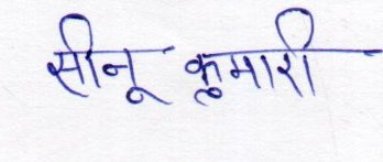 सीनू कुमारी